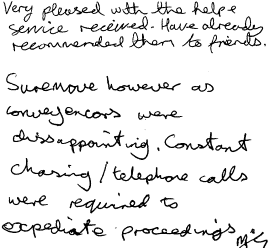 Very pleased with the help &
service received. Have already
recommended them to friends.
Suremove however as
conveyencors were
dissappointing. Constant
chasing/telephone calls
were required to
expediate proceedings